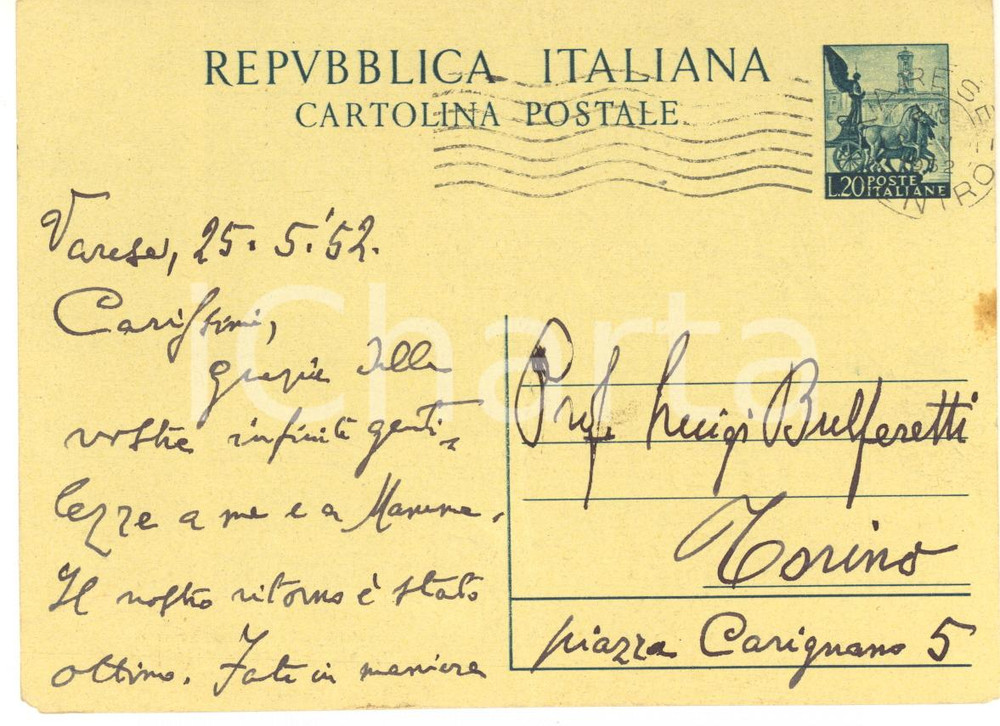 REPVBBLICA ITALIANA
CARTOLINA POSTALE
VARESE
CENTRO
1952
L.20 POSTE ITALIANE
iCharta
Varese, 25. 5.'52.
Carissimi,
grazie delle
vostre infinite genti=
lezze a me e a Mamma.
Il nostro ritorno è stato
ottimo. Fate in maniera
Prof. Luigi Bulferetti
Torino
piazza Carignano 5